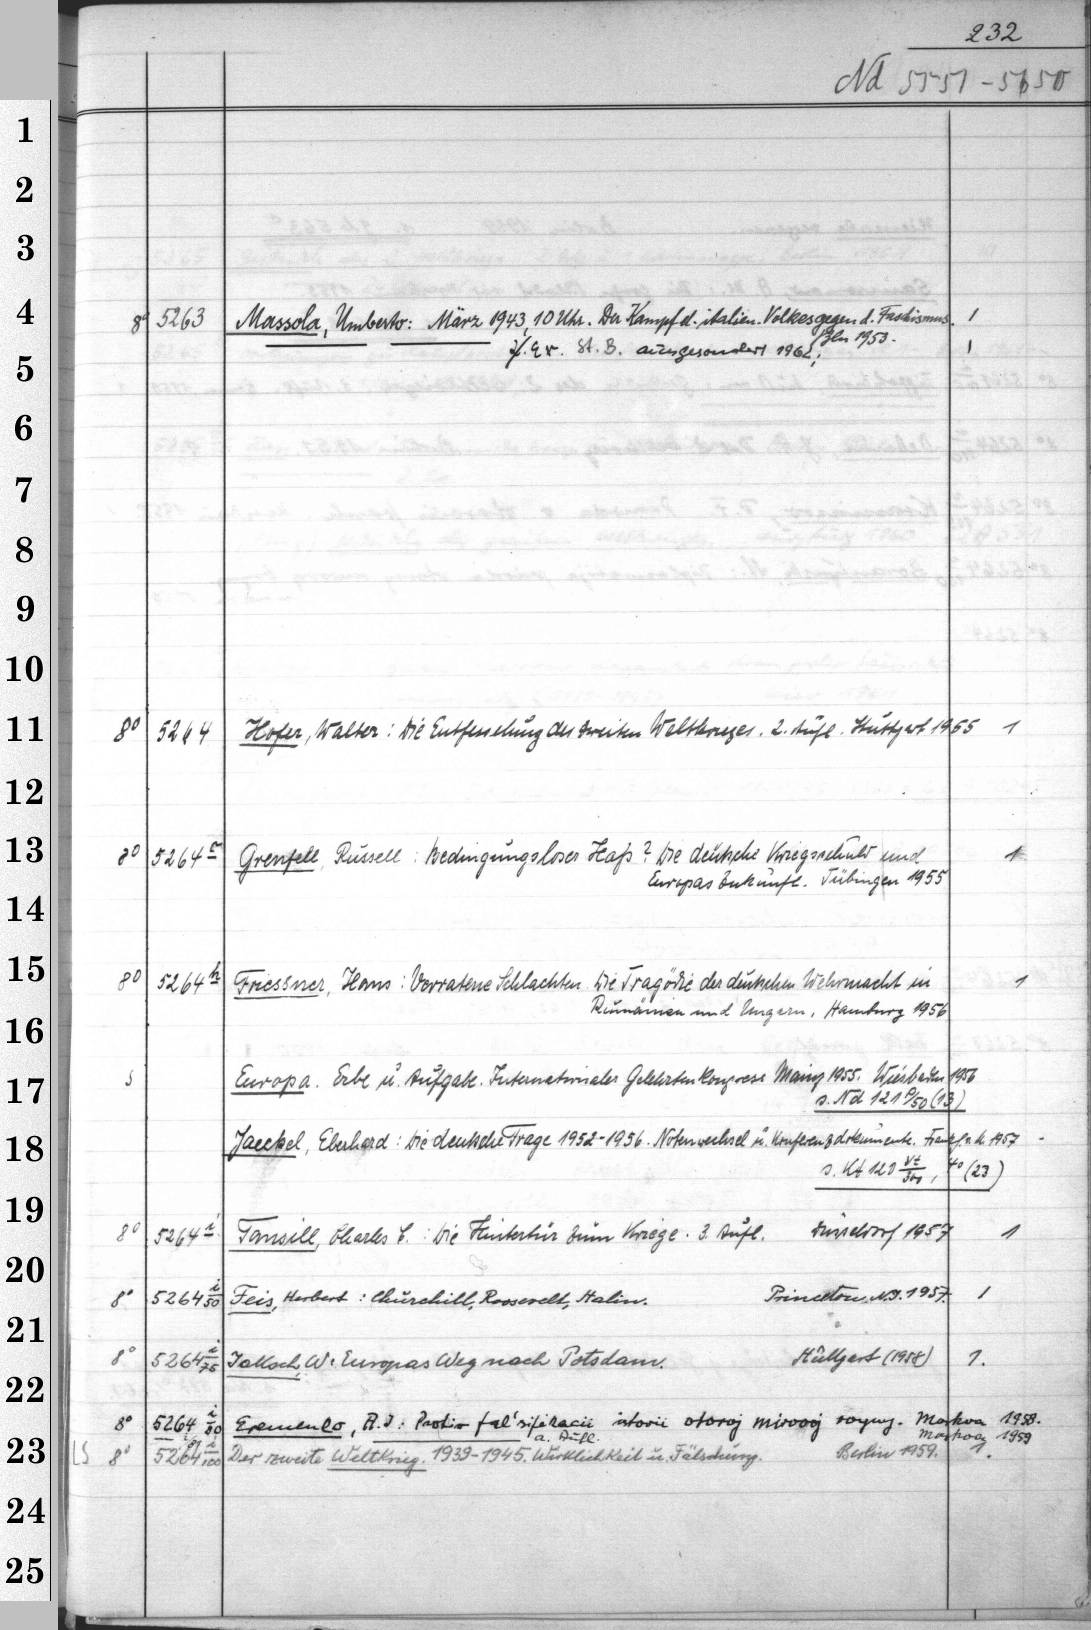 232
Nd 5551-5650
1
2
3
4 8° 5263 Massola, Umberto: März 1943, 10 Uhr. Der Kampf d. italien. Volkes gegen d. Faschismus. 1
Bln 1953.
St. B. ausgesondert 1962; 1
5
6
7
8
9
10
11 8° 5264 Hofer, Walter: Die Entfesselung des zweiten Weltkrieges. 2. Aufl. Stuttgart 1955 1
12
13 8° 5264 Grenfell, Russell: Bedingungsloser Haß? Die deutsche Kriegsschuld und 1
Europas Zukunft. Tübingen 1955
14
15 8° 5264 h Friessner, Hans: Verratene Schlachten. Die Tragödie der deutschen Wehrmacht in 1
Rumänien und Ungarn. Hamburg 1956
16
17 Europa. Erbe u. Aufgabe. Internationaler Gelehrtenkongress Mainz 1955. Wiesbaden 1956
s. Nd 121 /50 (13)
18 Jaeckel, Eberhard: Die deutsche Frage 1952-1956. Notenwechsel u. Konferenzdokumente. Frankf. a. M. 1957 -
s. Kt 120 /300, 4° (23)
19 8° 5264 i Tansill, Charles C.: Die Hintertür zum Kriege. 3. Aufl. Düsseldorf 1957 1
20 8° 5264 i/50 Feis, Herbert: Churchill, Roosevelt, Stalin. Princeton, N.J. 1957. 1
21 8° 5264 i/75 W.: Europas Weg nach Potsdam. Stuttgart (1958) 1.
22 8° 5264 i/80 Eremenko, A. I.: Protiv fal'sifikacii istorii vtoroj mirovoj vojny. Moskva 1958.
a. Aufl. Moskva 1959
23 LS 8° 5264 i/100 Der zweite Weltkrieg. 1939-1945. Wirklichkeit u. Fälschung. Berlin 1959. 1.
24
25